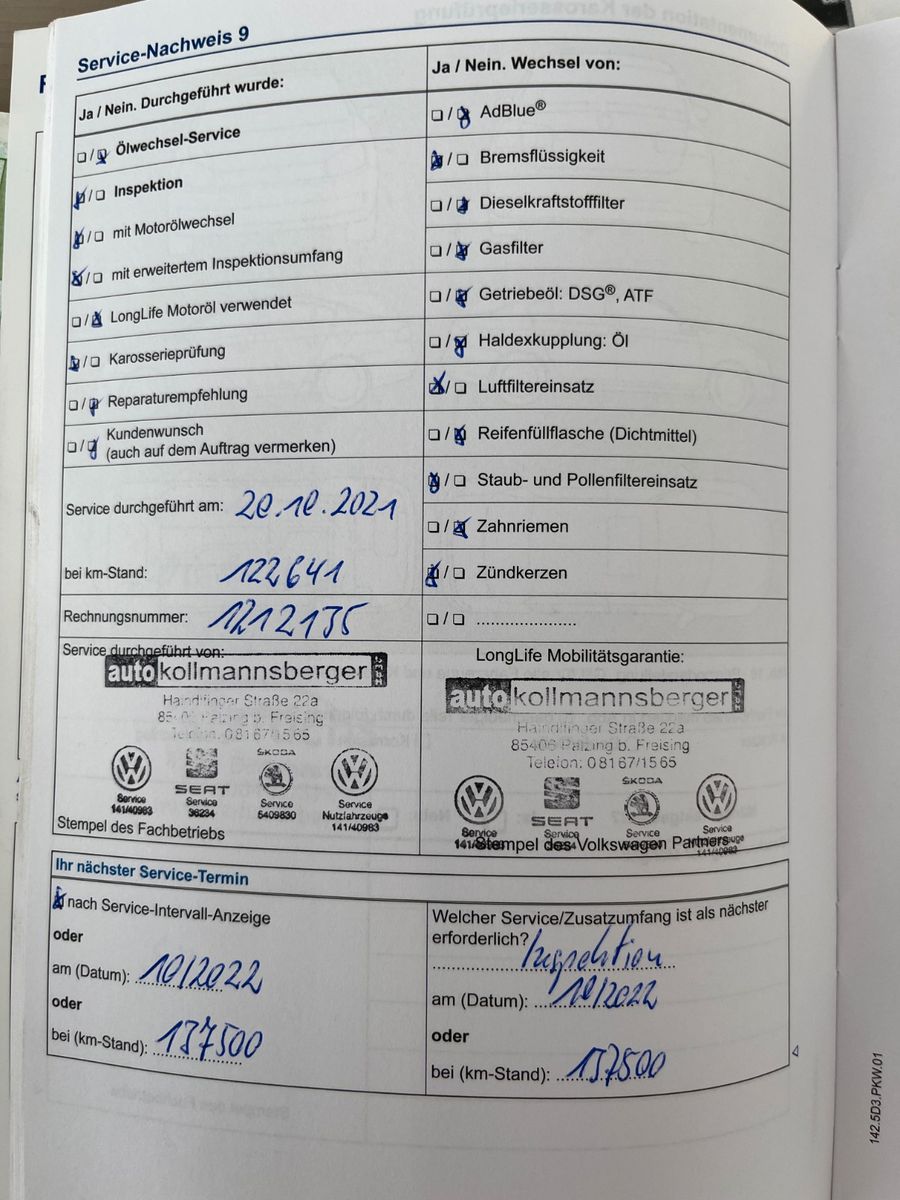 Service-Nachweis 9
Ja / Nein. Durchgeführt wurde:
Ölwechsel-Service
Inspektion
mit Motorölwechsel
mit erweitertem Inspektionsumfang
LongLife Motoröl verwendet
Karosserieprüfung
Reparaturempfehlung
Kundenwunsch
(auch auf dem Auftrag vermerken)
Service durchgeführt am: 20.10.2021
bei km-Stand: 122641
Rechnungsnummer: 1212135
Service durchgeführt von:
auto kollmannsberger
Haindlfinger Straße 22a
Palzing b. Freising
Telefon: 08167/1565
SKODA
SEAT
Service
141/40983
Service
36234
Service
5409830
Service
Nutzfahrzeuge
141/40983
Stempel des Fachbetriebs
Ja / Nein. Wechsel von:
AdBlue®
Bremsflüssigkeit
Dieselkraftstofffilter
Gasfilter
Getriebeöl: DSG®, ATF
Haldexkupplung: Öl
Luftfiltereinsatz
Reifenfüllflasche (Dichtmittel)
Staub- und Pollenfiltereinsatz
Zahnriemen
Zündkerzen
LongLife Mobilitätsgarantie:
auto kollmannsberger
Haindlfinger Straße 22a
85406 Palzing b. Freising
Telefon: 08167/1565
SKODA
SEAT
Service
Service
Service
Service
Stempel des Volkswagen Partners
Ihr nächster Service-Termin
nach Service-Intervall-Anzeige
oder
am (Datum): 10/2022
oder
bei (km-Stand): 137500
Welcher Service/Zusatzumfang ist als nächster
erforderlich? Inspektion
am (Datum): 10/2022
oder
bei (km-Stand): 137500
142.5D3.PKW.01